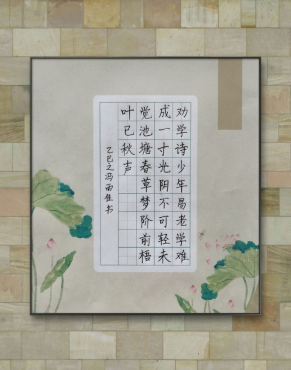 劝学诗少年易老学难
成一寸光阴不可轻未
觉池塘春草梦阶前梧
叶已秋声
乙巳之冯雨佳书